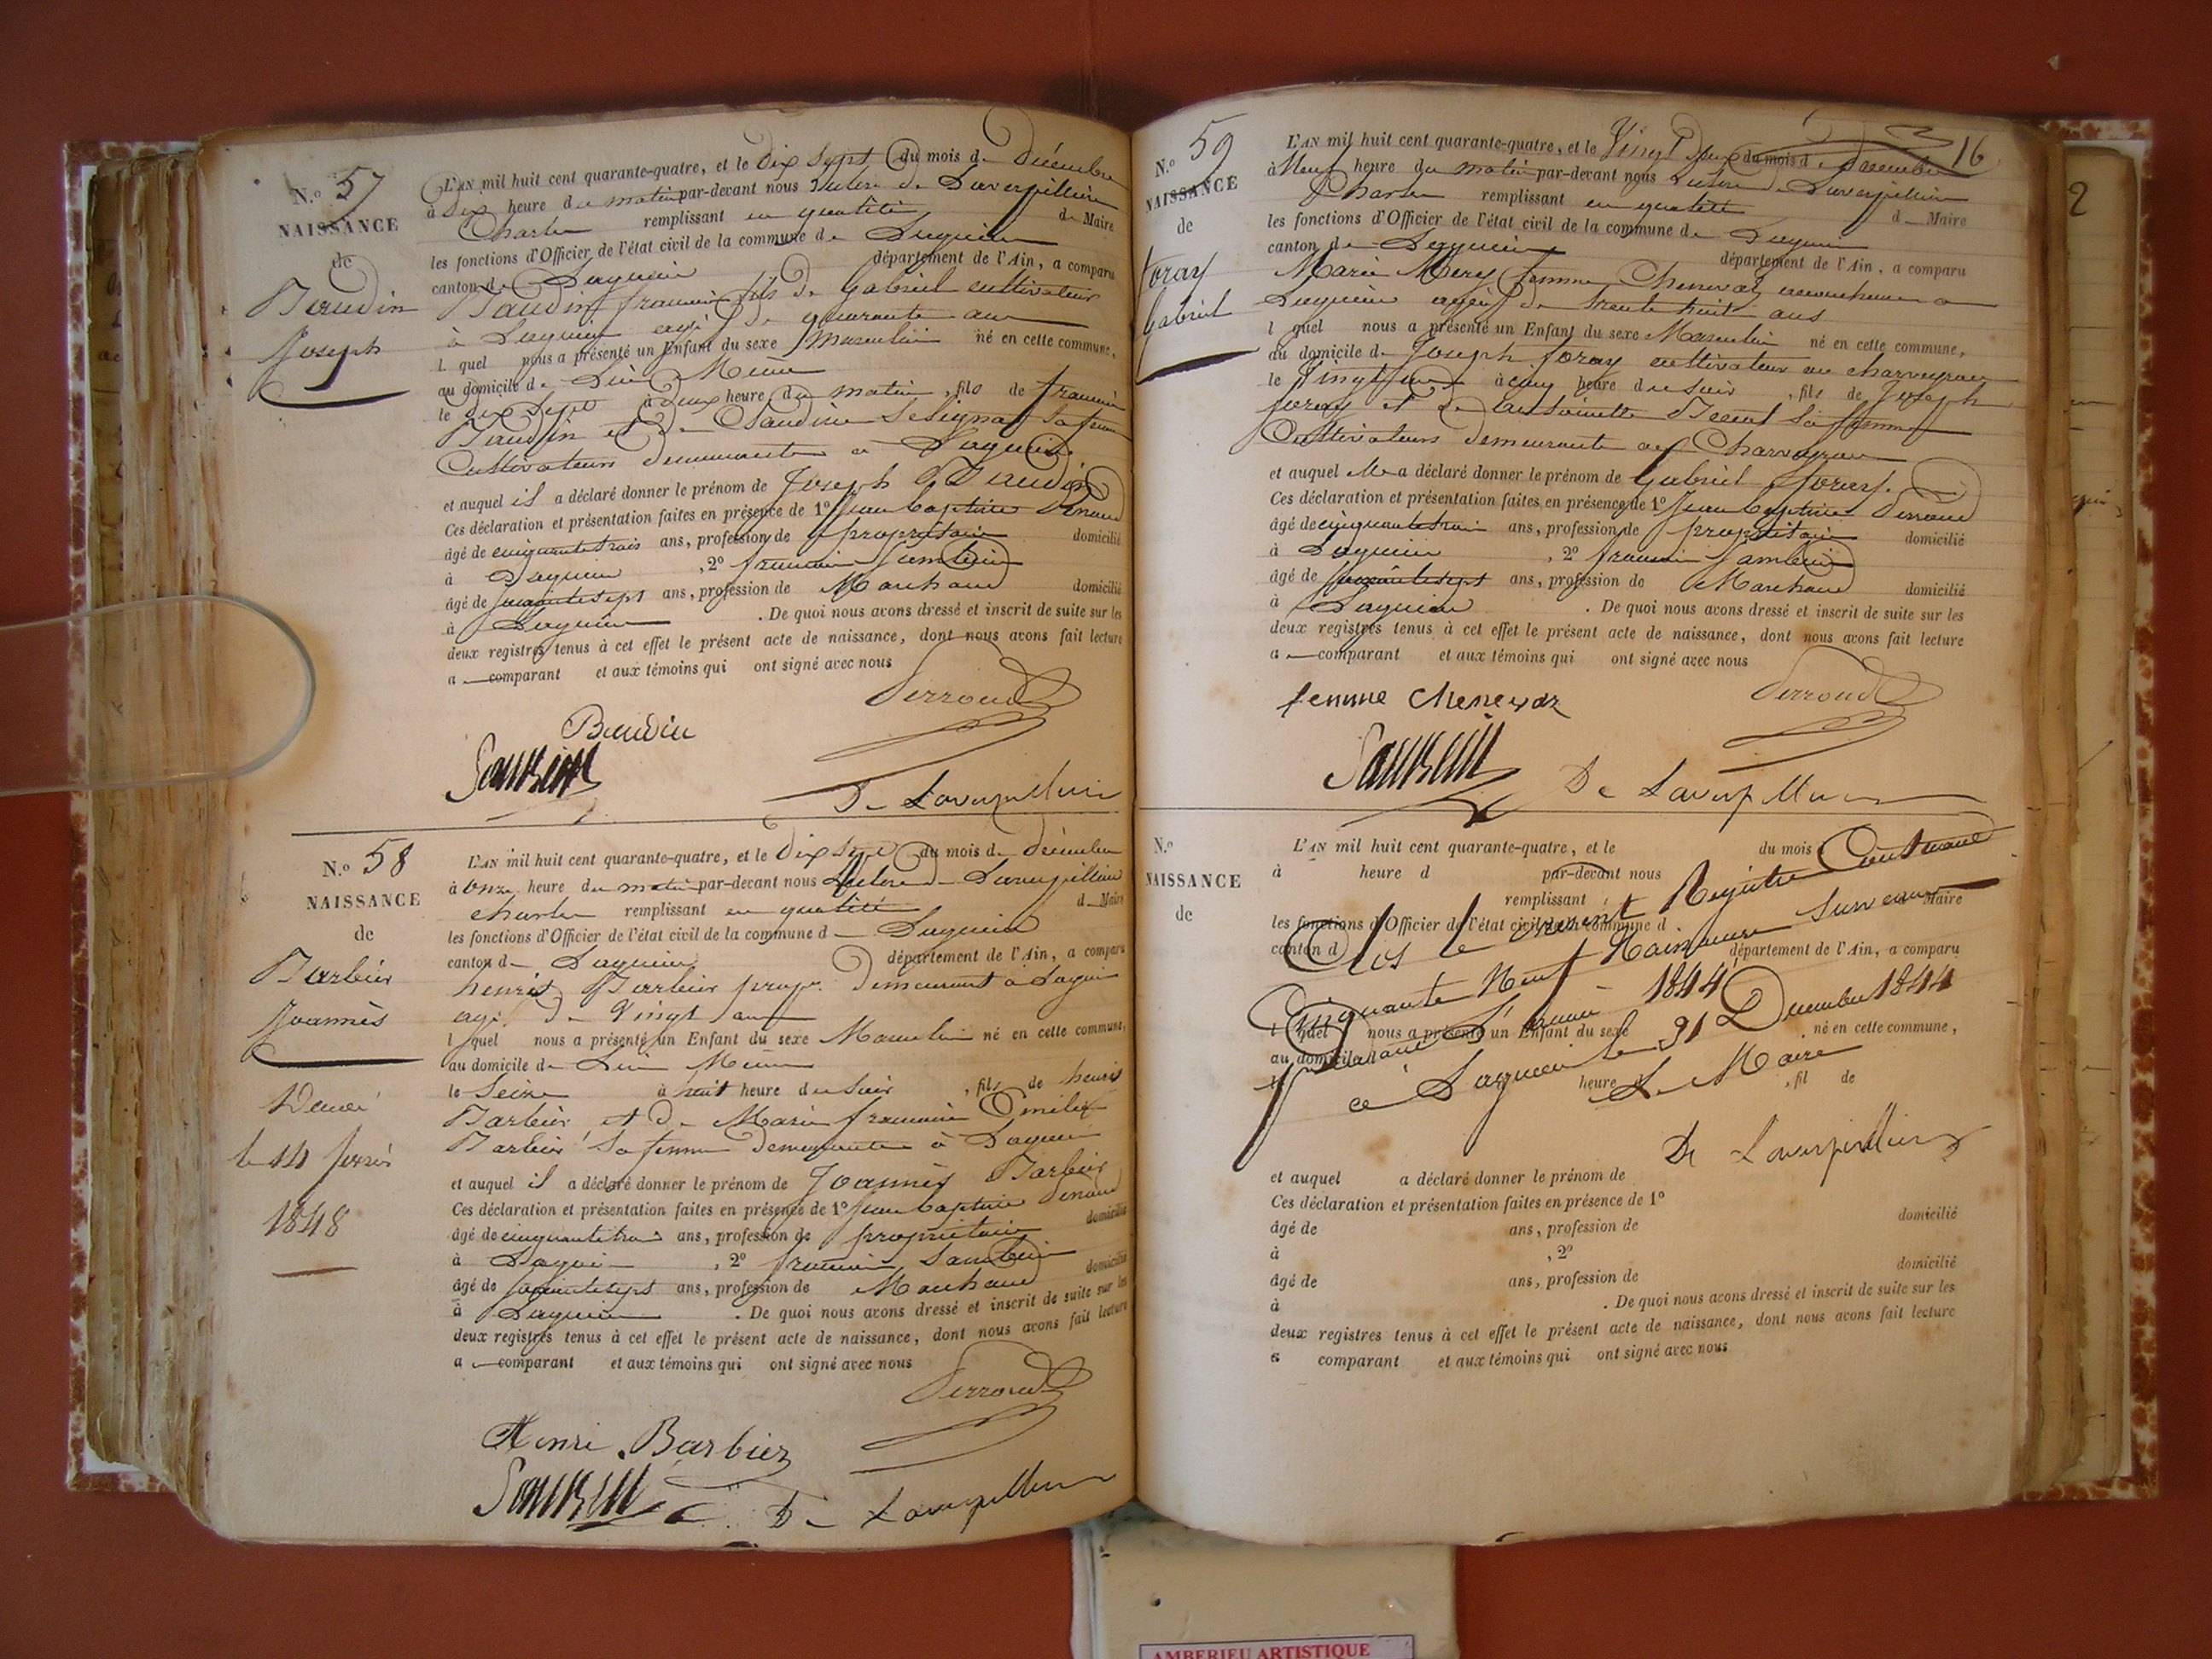 N.o 57
NAISSANCE
de
Baudin
Joseph
L'AN mil huit cent quarante-quatre, et le Dix Sept du mois de Décembre
à Dix heure du matin par-devant nous de Laverpillière
Charles remplissant en qualité de Maire
les fonctions d'Officier de l'état civil de la commune de Lagnieu
canton de Lagnieu département de l'Ain, a comparu
Baudin françois fils de Gabriel cultivateur
à Lagnieu agé de quarante ans
l quel nous a présenté un Enfant du sexe Masculin né en cette commune,
au domicile de
le dix sept à deux heure du matin, fils de françois
Baudin et de Claudine sa femme
Cultivateurs demeurants à Lagnieu
et auquel il a déclaré donner le prénom de Joseph Baudin
Ces déclaration et présentation faites en présence de 1o Jean baptiste Perroud
âgé de cinquante trois ans, profession de propriétaire domicilié
à Lagnieu, 2o françois Sambein
âgé de ans, profession de Marchand domicilié
à Lagnieu. De quoi nous avons dressé et inscrit de suite sur les
deux registres tenus à cet effet le présent acte de naissance, dont nous avons fait lecture
a comparant et aux témoins qui ont signé avec nous
Perroud
Baudin
De Laverpilliere
N.o 58
NAISSANCE
de
Barbier
Joannès
1848
L'AN mil huit cent quarante-quatre, et le Dix Sept du mois de Décembre
à onze heure du matin par-devant nous de Laverpillière
charles remplissant en qualité de Maire
les fonctions d'Officier de l'état civil de la commune d Lagnieu
canton de Lagnieu département de l'Ain, a comparu
henri Barbier prop. demeurant à Lagnieu
agé de Vingt ans
l quel nous a présenté un Enfant du sexe Masculin né en cette commune,
au domicile de
le Seize à huit heure du Soir, fils de henri
Barbier et de Marie françoise Emilie
Barbier sa femme demeurants à Lagnieu
et auquel il a déclaré donner le prénom de Joannès Barbier
Ces déclaration et présentation faites en présence de 1o Jean baptiste Perroud
âgé de cinquante trois ans, profession de propriétaire domicilié
à Lagnieu, 2o françois Sambein
âgé de ans, profession de Marchand domicilié
à Lagnieu. De quoi nous avons dressé et inscrit de suite sur les
deux registres tenus à cet effet le présent acte de naissance, dont nous avons fait lecture
a comparant et aux témoins qui ont signé avec nous
Perroud
Henri Barbier
De Laverpilliere
16
N.o 59
NAISSANCE
de
foray
Gabriel
L'AN mil huit cent quarante-quatre, et le Vingt deux du mois de Décembre
à Neuf heure du matin par-devant nous de Laverpillière
Charles remplissant en qualité d Maire
les fonctions d'Officier de l'état civil de la commune de Lagnieu
canton de Lagnieu département de l'Ain, a comparu
Marie Mery femme Chenevaz accoucheuse a
Lagnieu agée de trente huit ans
l quel nous a présenté un Enfant du sexe Masculin né en cette commune,
au domicile de Joseph foray cultivateur au charveyron
le Vingt à cinq heure du soir, fils de Joseph
foray et de antoinette sa femme
Cultivateurs demeurants au Charveyron
et auquel a déclaré donner le prénom de Gabriel foray.
Ces déclaration et présentation faites en présence de 1o Jean baptiste Perroud
âgé de cinquante trois ans, profession de propriétaire domicilié
à Lagnieu, 2o françois Sambein
âgé de ans, profession de Marchand domicilié
à Lagnieu. De quoi nous avons dressé et inscrit de suite sur les
deux registres tenus à cet effet le présent acte de naissance, dont nous avons fait lecture
a comparant et aux témoins qui ont signé avec nous
femme Chenevaz
Perroud
De Laverpilliere
N.o
NAISSANCE
de
L'AN mil huit cent quarante-quatre, et le du mois
à heure d par-devant nous
remplissant Maire
les fonctions d'Officier de l'état civil de la commune d
canton d département de l'Ain, a comparu
l quel nous a présenté un Enfant du sexe né en cette commune,
au domicile d
heure d, fil de
Clos le présent Registre Contenant
Cinquante Neuf Naissances survenues
pendant l'année 1844
a Lagnieu le 31 Decembre 1844
Le Maire
De Laverpilliere
et auquel a déclaré donner le prénom de
Ces déclaration et présentation faites en présence de 1o
âgé de ans, profession de domicilié
à , 2o
âgé de ans, profession de domicilié
à . De quoi nous avons dressé et inscrit de suite sur les
deux registres tenus à cet effet le présent acte de naissance, dont nous avons fait lecture
a comparant et aux témoins qui ont signé avec nous
2
AMBERIEU ARTISTIQUE